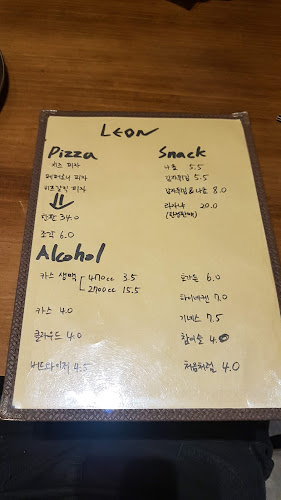 LEON
Pizza
치즈 피자
페퍼로니 피자
치즈갈릭 피자
한판 34.0
조각 6.0
Snack
나쵸 5.5
감자튀김 5.5
감자튀김&나쵸 8.0
라자냐 20.0
(한정판매)
Alcohol
카스 생맥 470cc 3.5
2700cc 15.5
카스 4.0
클라우드 4.0
버드와이저 4.5
호가든 6.0
하이네켄 7.0
기네스 7.5
참이슬 4.0
처음처럼 4.0